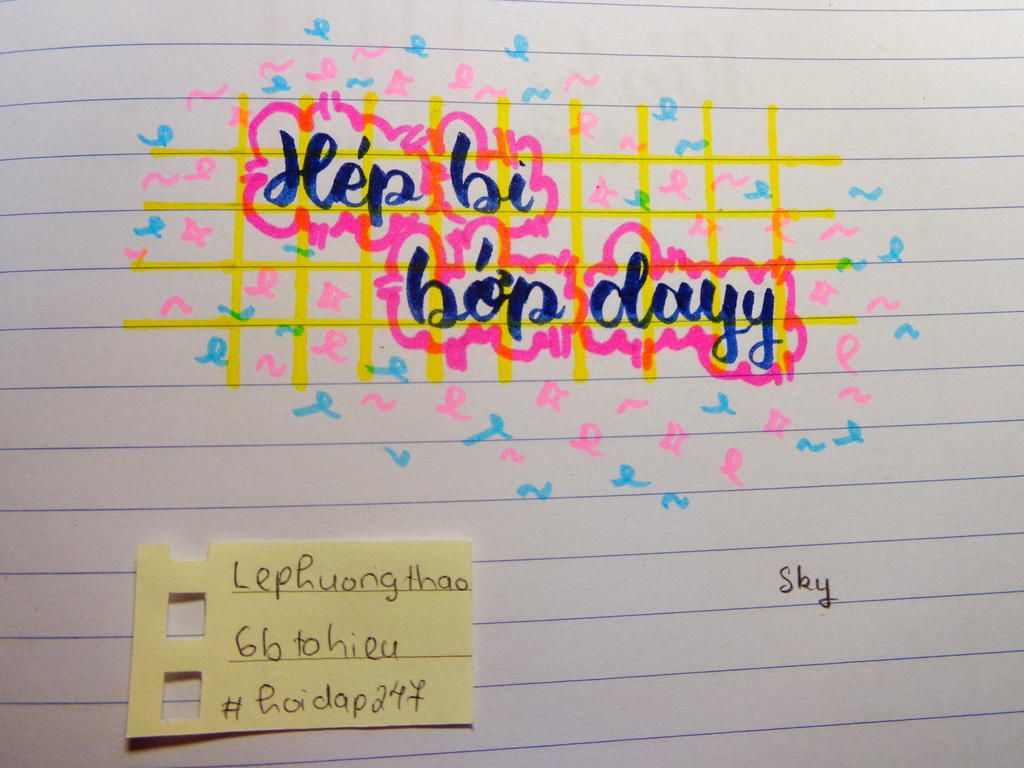 Hép bi
bớp dayy
Lephuongthao
6btohieu
#hoidap247
Sky